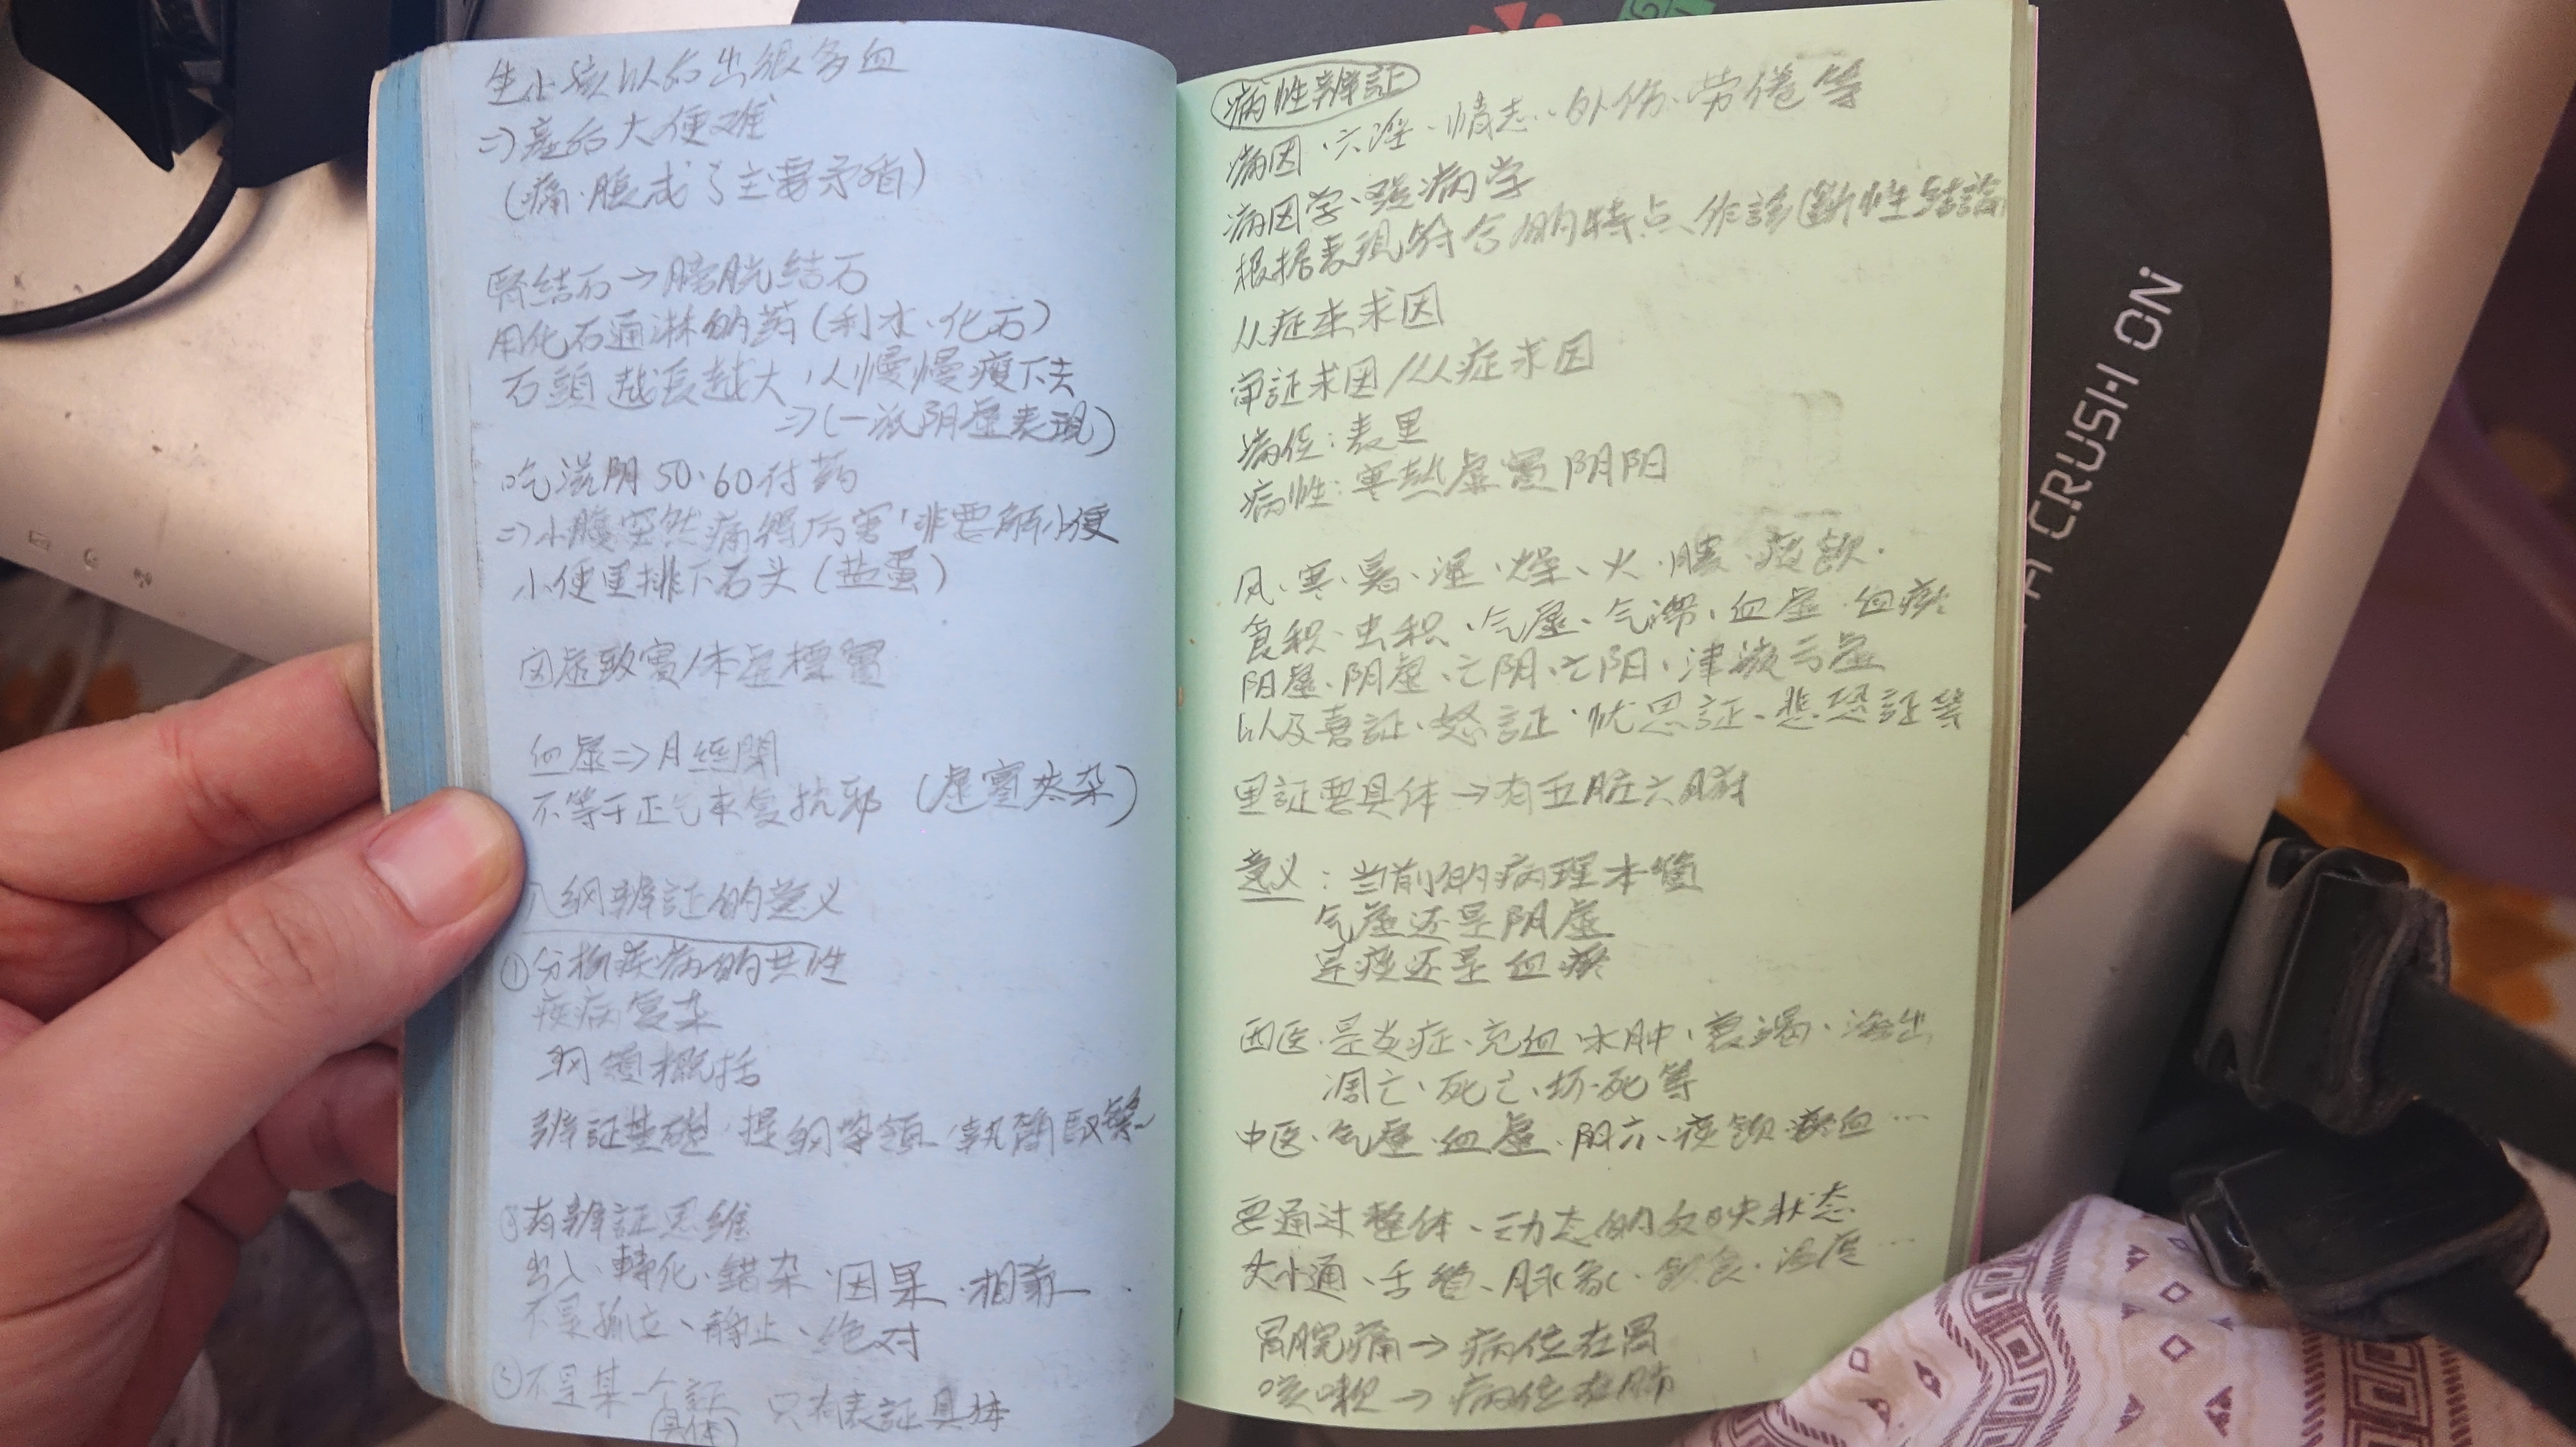 生小孩以后出很多血
⇒产后大便难
(痛、胀成了主要矛盾)
腎结石→膀胱結石
用化石通淋的药(利水、化石)
石頭越长越大,人慢慢瘦下去
⇒(一派阴虚表现)
吃滋阴50、60付药
⇒小腹突然痛得厉害,非要解小便
小便里排下石头(盐蛋)
因虚致實/本虚標實
血虚⇒月經閉
不等于正气来复抗邪 (虚實夹杂)
八纲辨証的意义
①分析疾病的共性
疾病复杂
纲领概括
辨証基礎、提纲挈领、執簡馭繁
有辨証思维
出入、轉化、錯杂、因果、相兼
不是孤立、静止、绝对
③不是某一个証 只有表証具体
(具体)
病性辨証
病因、六淫、情志、外伤、劳倦等
病因学、發病学
根据表現符合的特点、作診斷性结論
从症来求因
审証求因/从症求因
病位:表里
病性:寒熱虚實阴阳
风、寒、暑、湿、燥、火、膿、痰飲、
食积、虫积、气虚、气滞、血虚、血瘀
阳虚、阴虚、亡阴、亡阳、津液亏虚
以及喜証、怒証、忧思証、悲恐証等
里証要具体→有五脏六腑
意义:当前的病理本質
气虚还是阴虚
是痰还是血瘀
西医、是炎症、充血、水肿、衰竭、渗出
凋亡、死亡、坏死等
中医、气虚、血虚、阳亢、痰飲、瘀血…
要通过整体、动态的反映状态
大小通、舌質、脉象、飲食、温度…
胃脘痛→病位在胃
咳嗽→病位在肺
A CRUSH ON